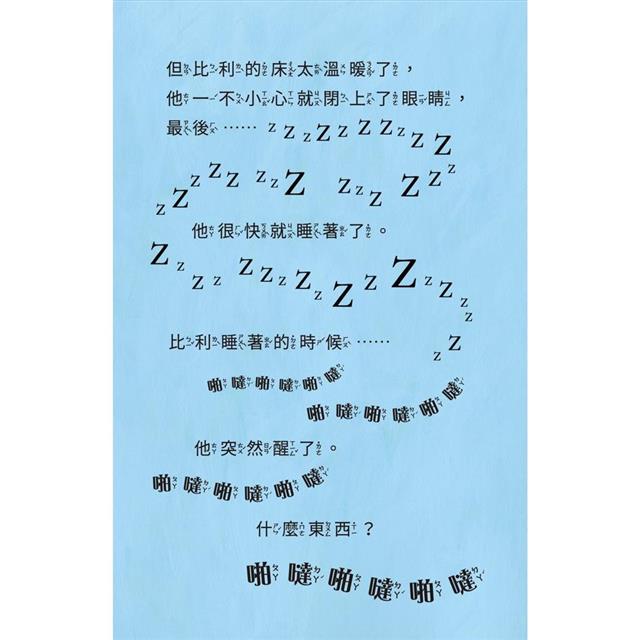 但比利的床太溫暖了，
他一不小心就閉上了眼睛，
最後…… z z z Z z Z Z z z Z
z Z z Z z z z Z z z z Z z z
他很快就睡著了。
Z z z z Z z z Z z Z z Z z z z z
比利睡著的時候…… z Z
啪噠啪噠啪噠
啪噠啪噠啪噠
他突然醒了。
啪噠啪噠啪噠
什麼東西？
啪噠啪噠啪噠